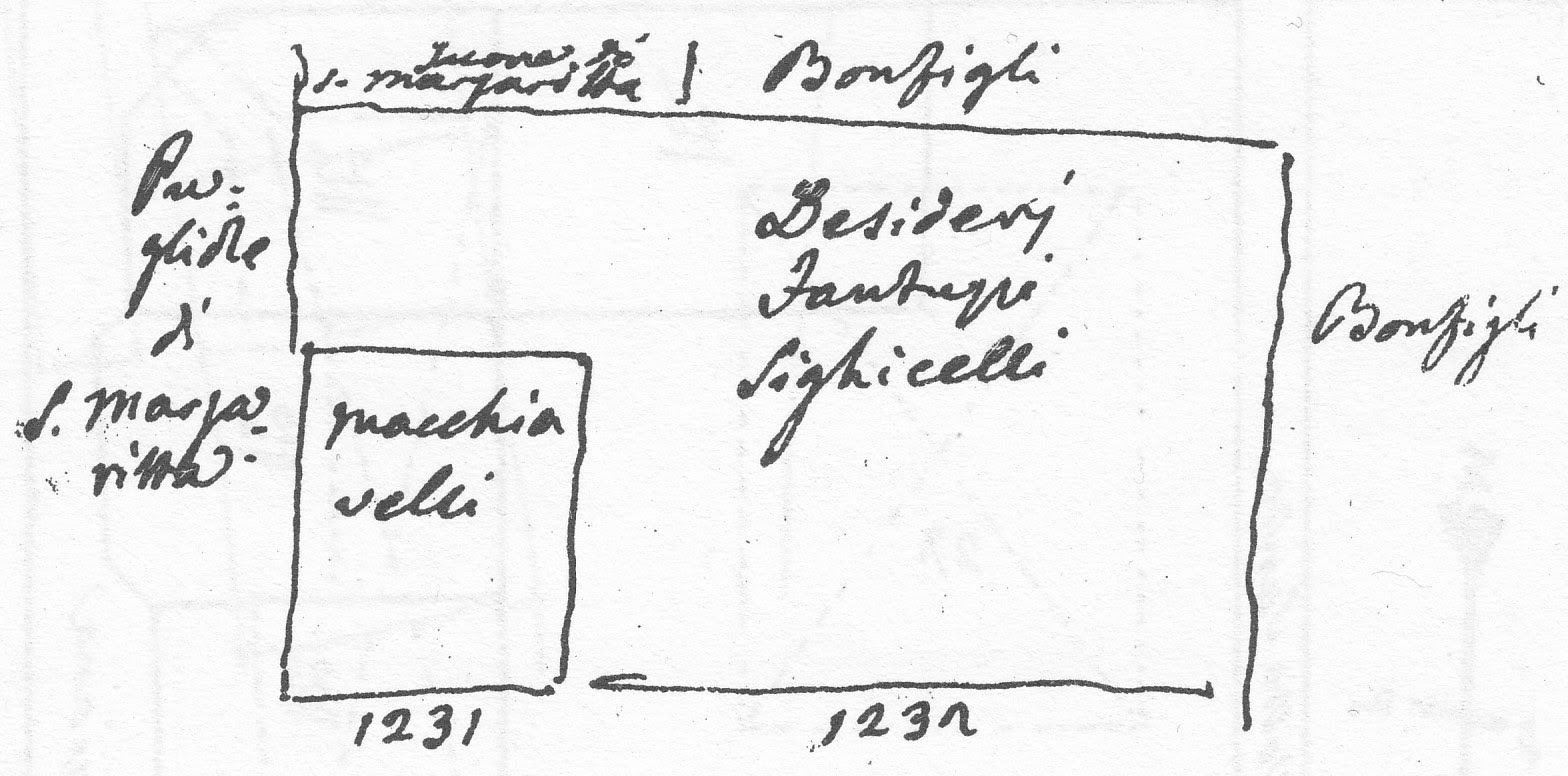 Suore di
S. Margaritta
Bonfigli
Pu=
gliole
di
S. Marga=
ritta
Desiderÿ
Fantuzzi
Sighicelli
Bonfigli
macchia
velli
1231
1232